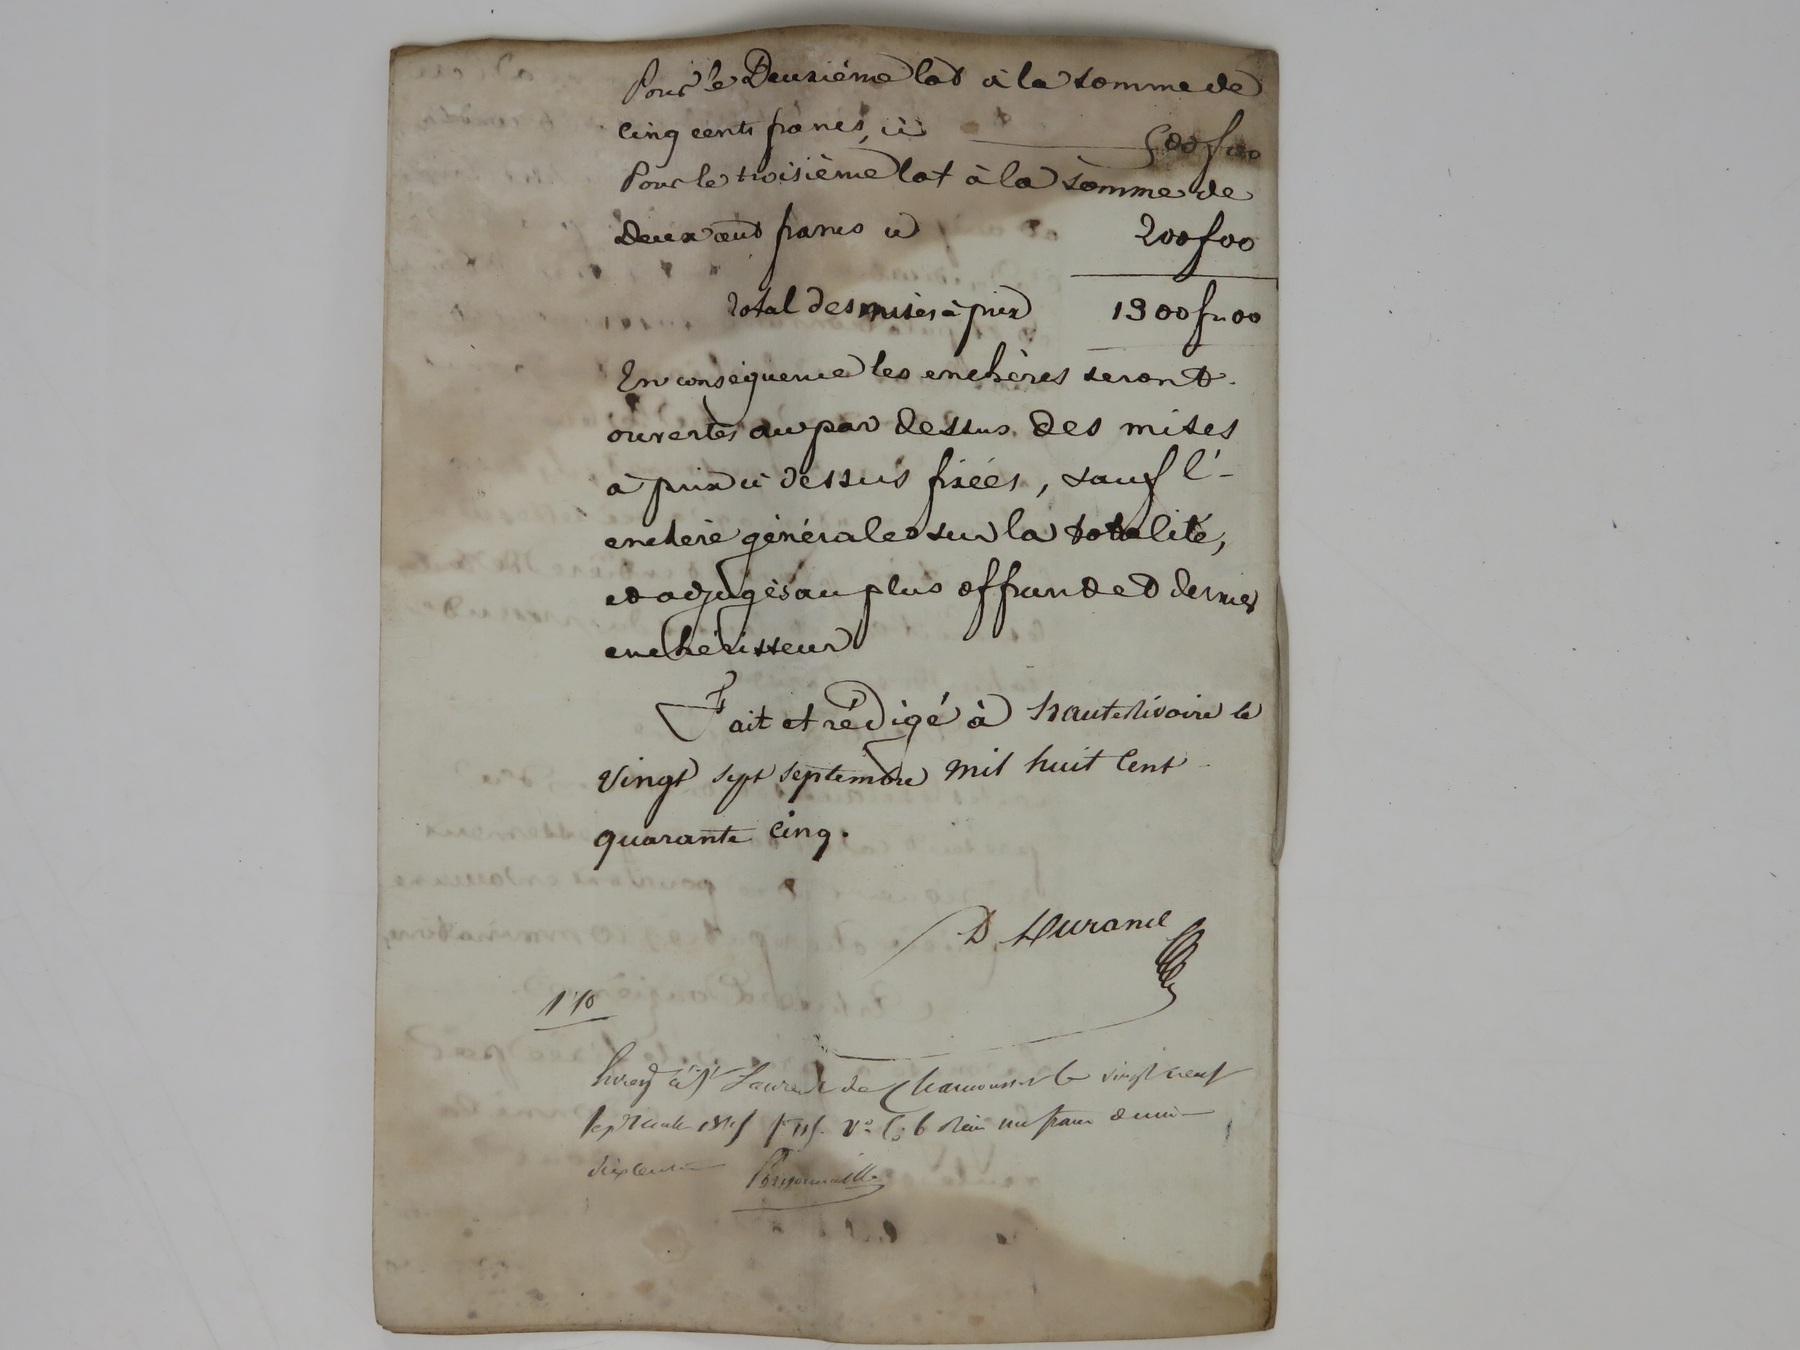 Pour le Deuxième lot à la somme de
cinq cents francs, ci 500 f 00
Pour le troisième lot à la somme de
deux cent francs ci 200 f 00
total des mises à prix 1300 f 00
En conséquence les enchères seront
ouvertes au par dessus des mises
à prix ci dessus fixées, sauf l'-
enchère générale sur la totalité,
et adjugés au plus offrant et dernier
enchérisseur
Fait et rédigé à hauterivoire le
vingt sept septembre mil huit cent
quarante cinq.
D Durand
1 10
à St Laurent de Chamousset le vingt neuf
septembre 1845 f 115 Vo C 6 Reçu un franc
dix cent